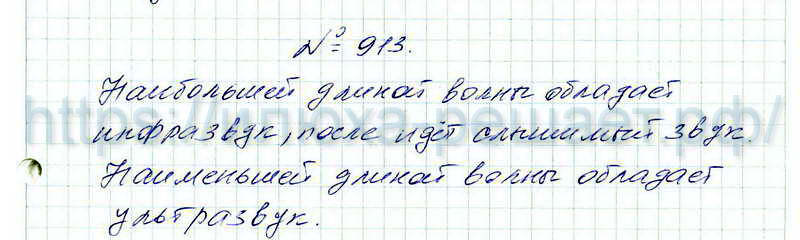 № 913.
Наибольшей длиной волны обладает
инфразвук, после идёт слышимый звук.
Наименьшей длиной волны обладает
ультразвук.